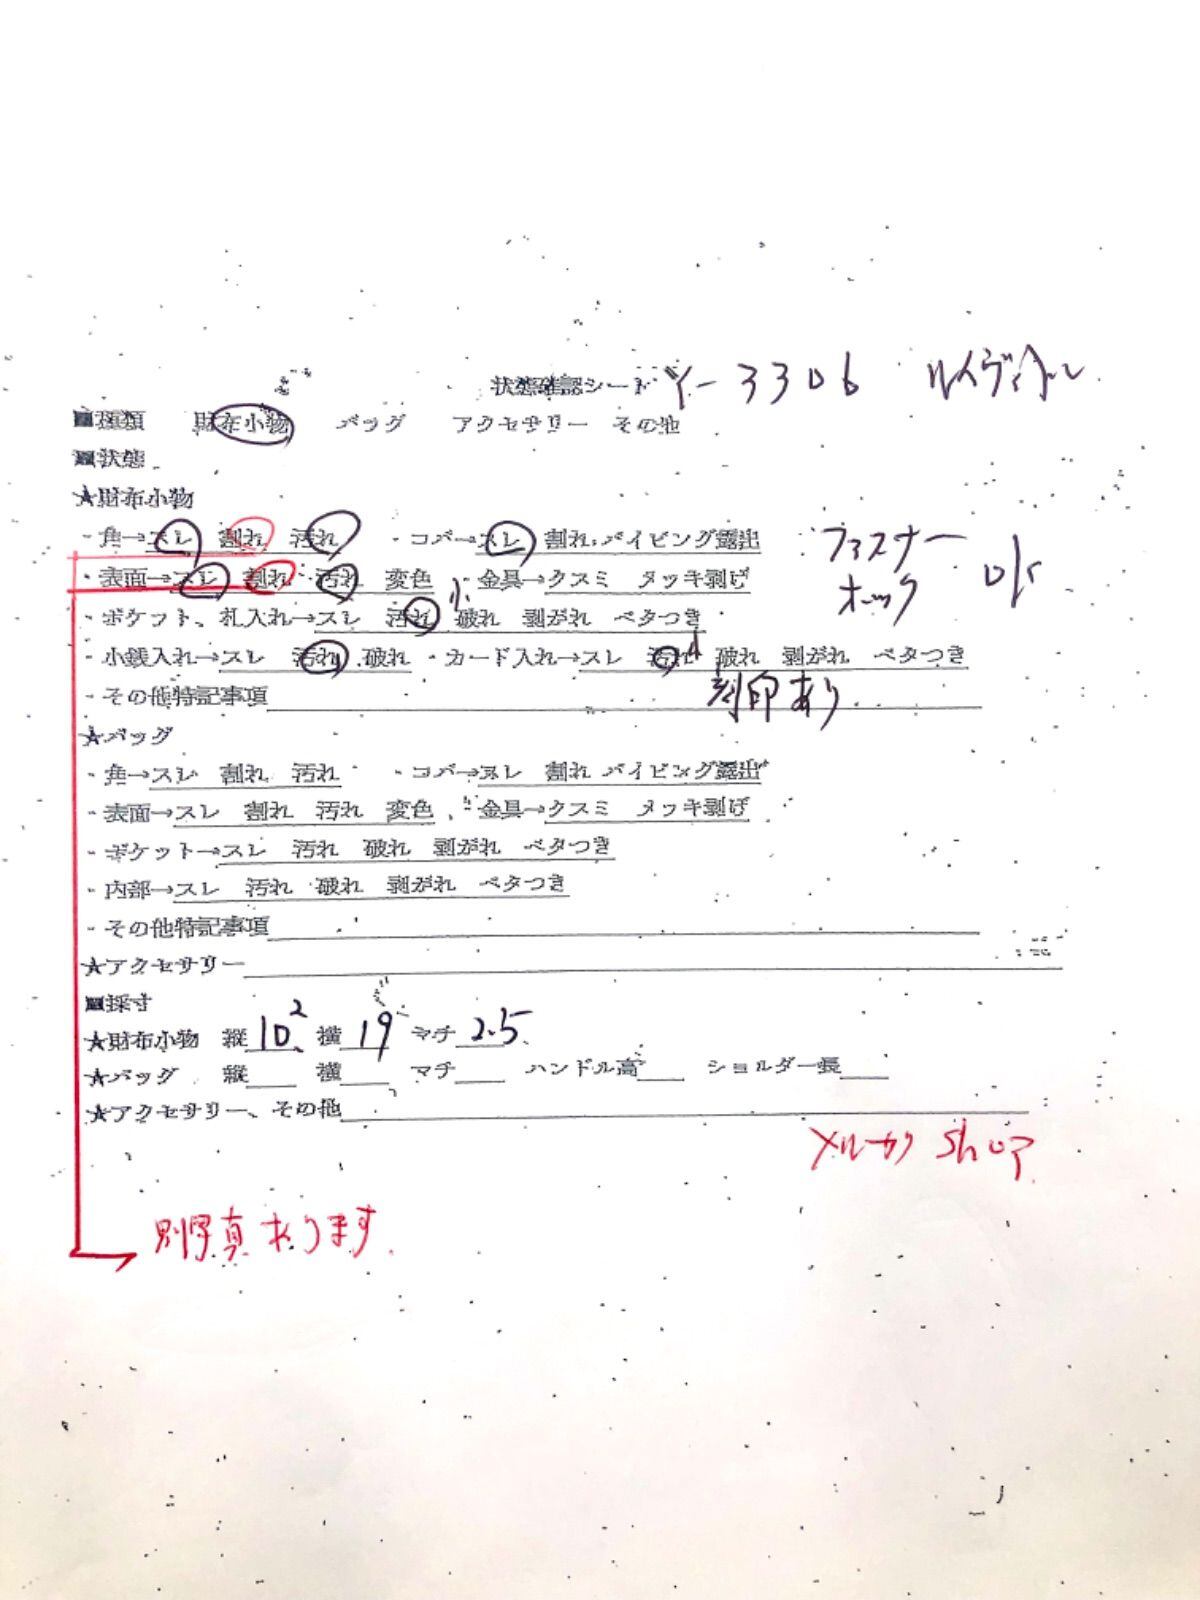 状態確認シート Y-3306 ルイヴィトン
■種類 財布小物 バッグ アクセサリー その他
■状態
★財布小物
・角→スレ 割れ 汚れ ・コバ→スレ 割れ パイピング露出 ファスナー
・表面→スレ 割れ 汚れ 変色 ・金具→クスミ メッキ剥げ ホック OK
・ポケット、札入れ→スレ 汚れ 小 破れ 剥がれ ベタつき
・小銭入れ→スレ 汚れ 破れ ・カード入れ→スレ 汚れ 小 破れ 剥がれ ベタつき
・その他特記事項 刻印あり
★バッグ
・角→スレ 割れ 汚れ ・コバ→スレ 割れ パイピング露出
・表面→スレ 割れ 汚れ 変色 ・金具→クスミ メッキ剥げ
・ポケット→スレ 汚れ 破れ 剥がれ ベタつき
・内部→スレ 汚れ 破れ 剥がれ ベタつき
・その他特記事項
★アクセサリー
■採寸
★財布小物 縦 10² 横 19 マチ 2.5
★バッグ 縦 横 マチ ハンドル高 ショルダー長
★アクセサリー、その他
メルカリ shop
別写真あります